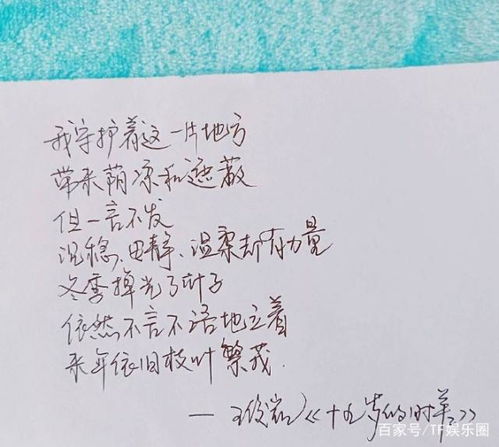 我守护着这一片地方
带来荫凉和遮蔽
但一言不发
沉稳、安静、温柔却有力量
冬季掉光了叶子
依然不言不语地立着
来年依旧枝叶繁茂.
—王俊凯《十九岁的时差》
百家号/TF娱乐圈